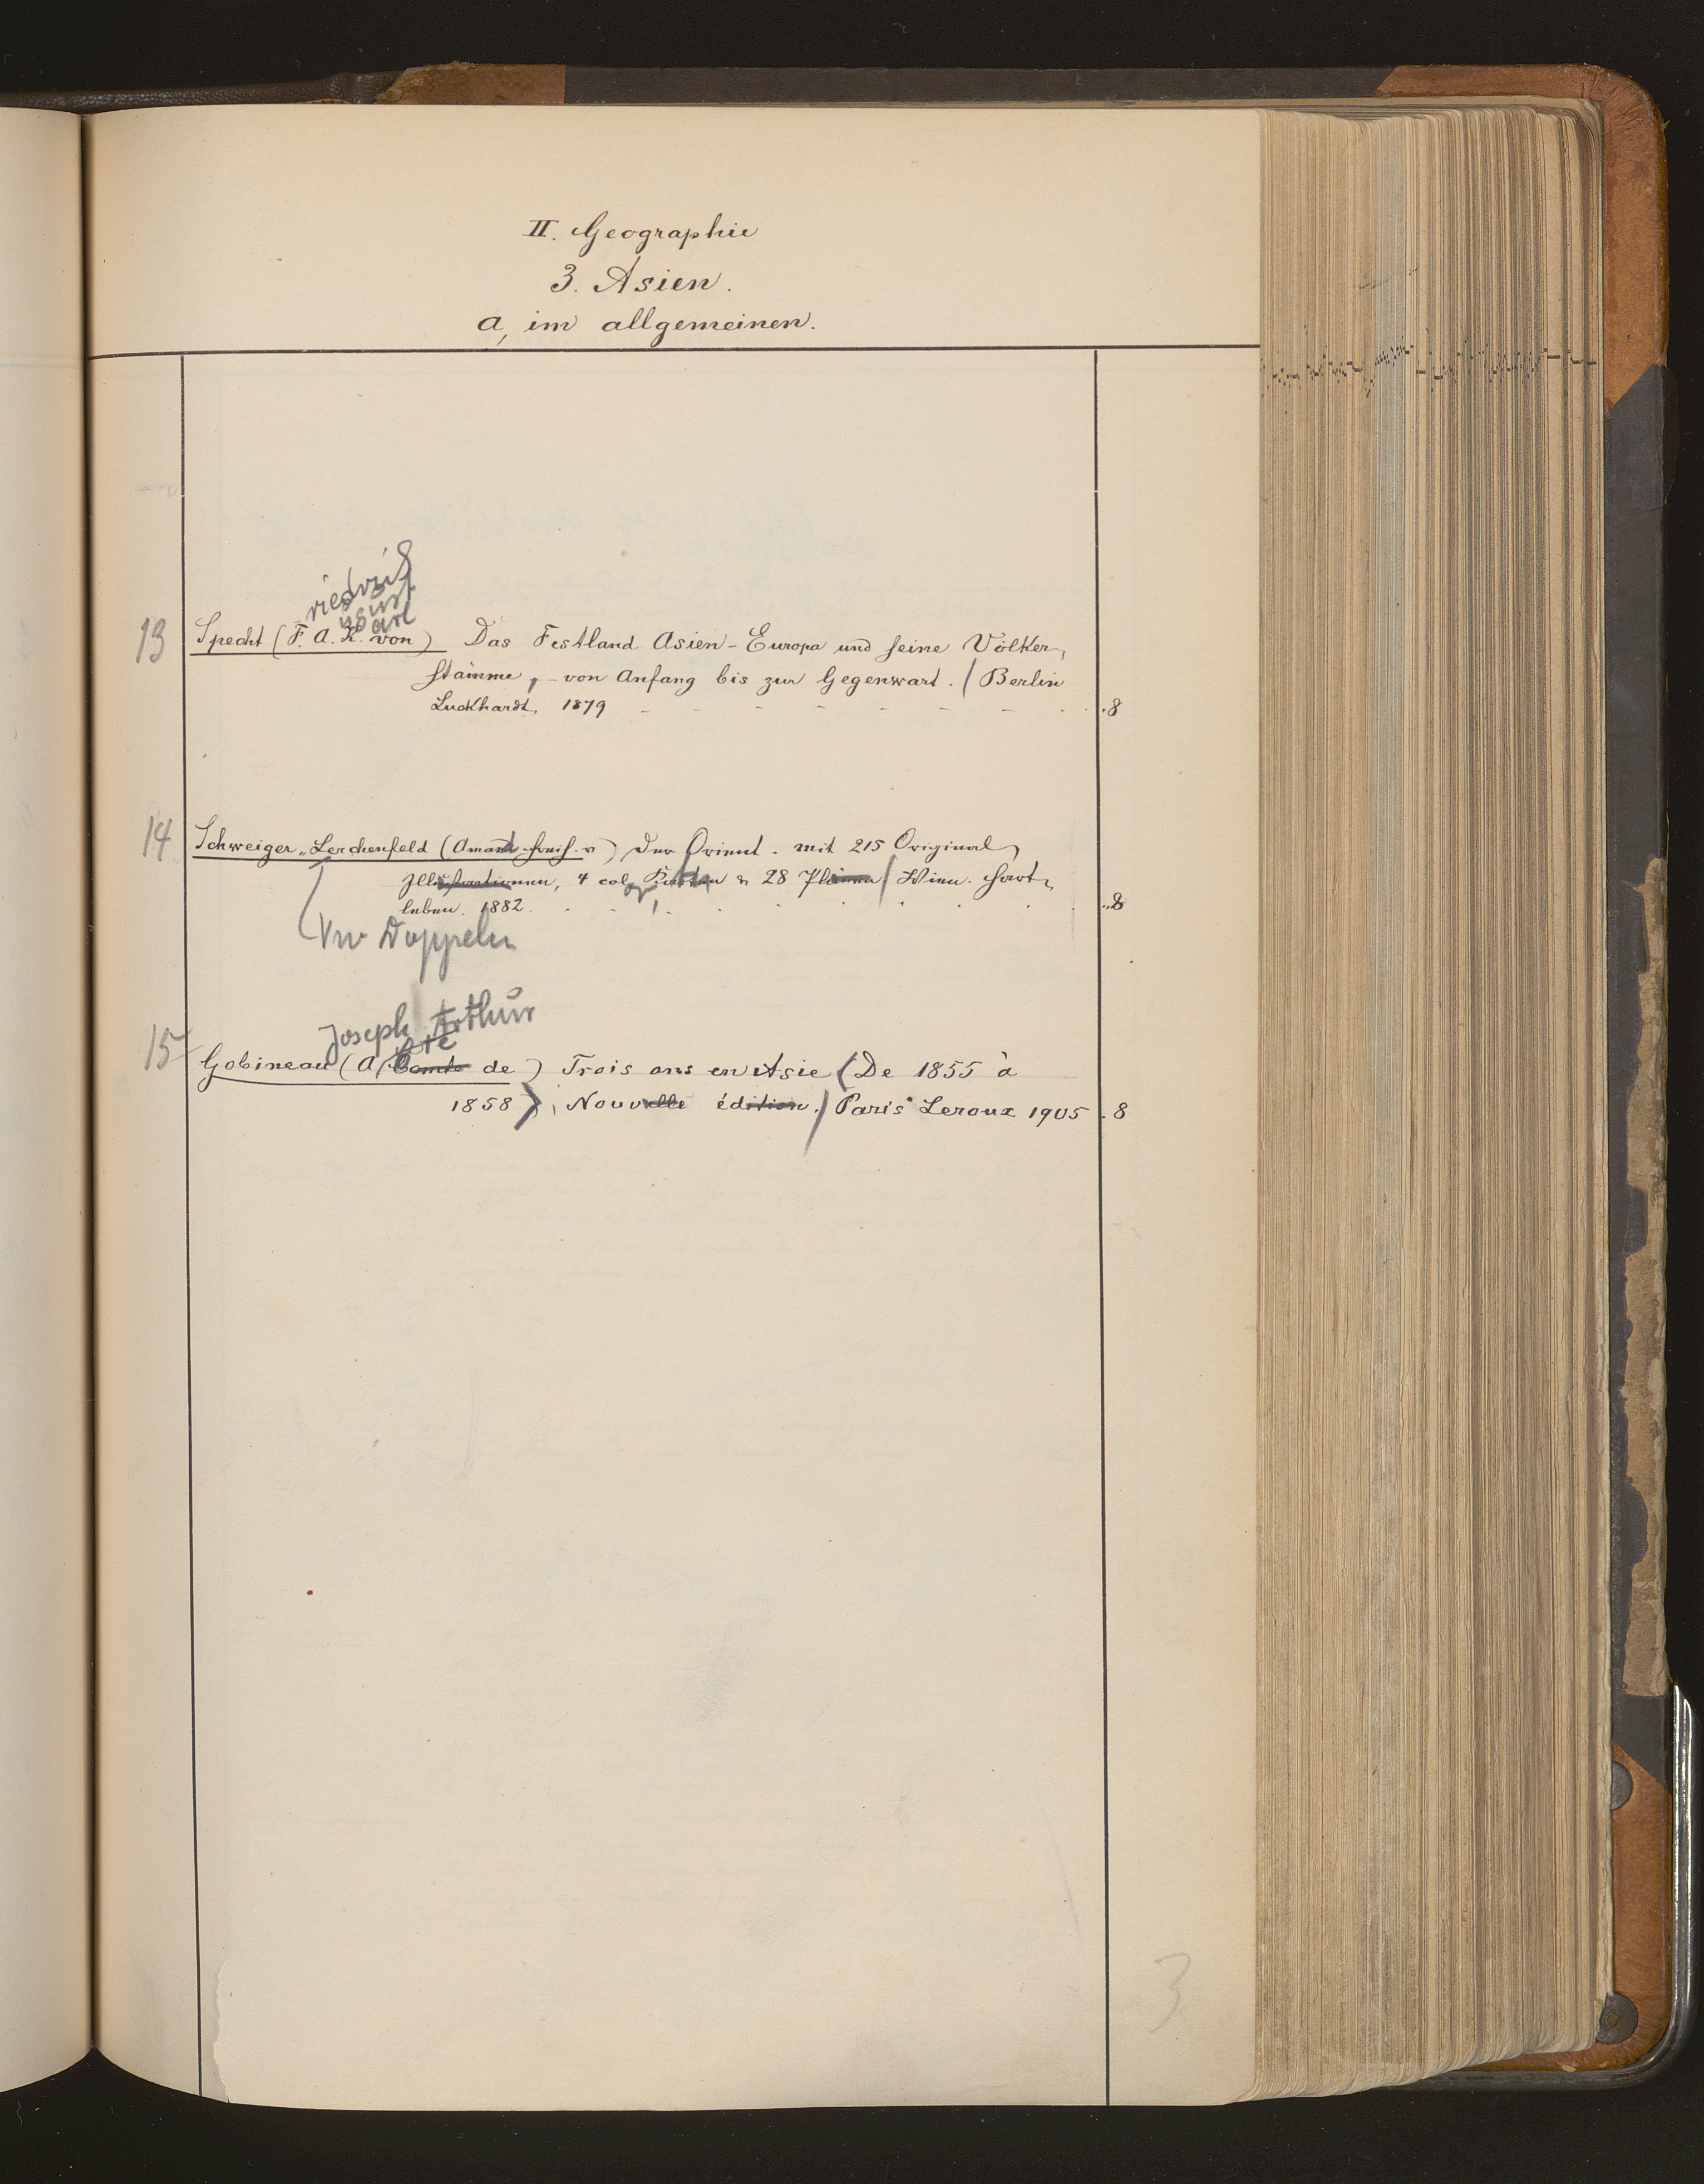 II. Geographie
3. Asien.
a, im allgemeinen.
riedrich
ugust
arl
13 Specht (F. A. K. von) Das Festland Asien-Europa und seine Völker-
stämme, - von Anfang bis zur Gegenwart. / Berlin
Luckhardt, 1879 - - - - - - - . . 8
14 Schweiger-Lerchenfeld (Amand Freih. v) Der Orient. mit 215 Original
Illustrationen, 4 col. Karten & 28 Plänen / Wien. Hart-
leben. 1882. . . . . . . . . 8
Doppeln
Joseph Arthur
Cte
15 Gobineau (A Comte de) Trois ans en Asie (De 1855 à
1858), Nouvelle édition. / Paris Leroux 1905 . 8
3